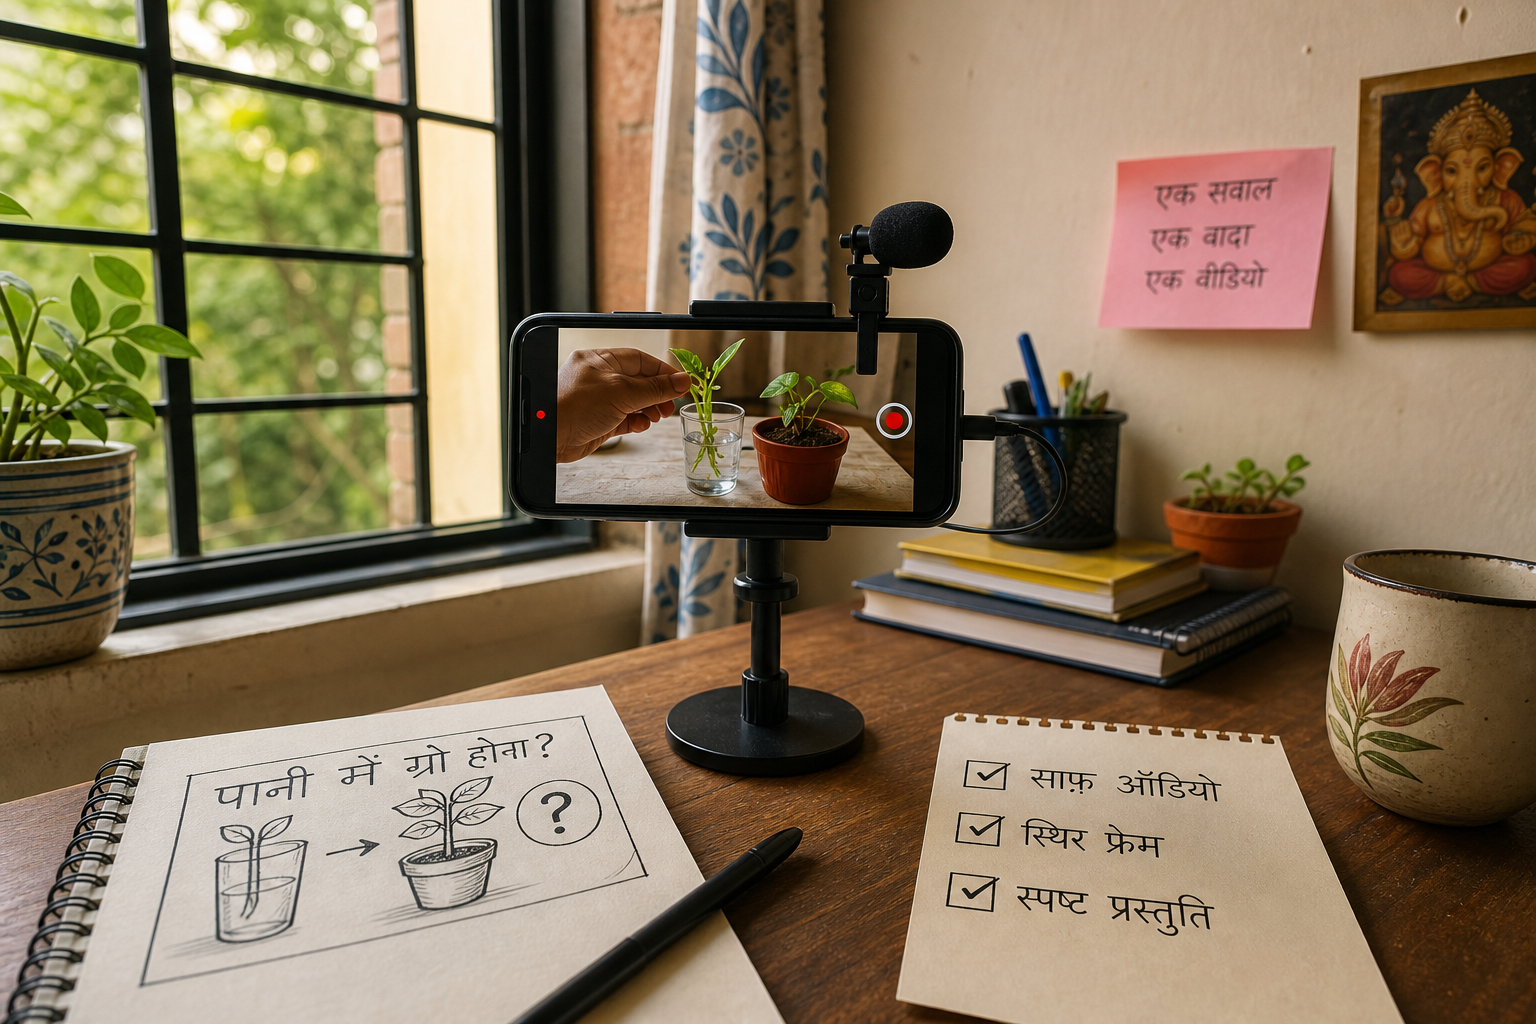 एक सवाल
एक वादा
एक वीडियो
पानी में ग्रो होना?
?
साफ़ ऑडियो
स्थिर फ्रेम
स्पष्ट प्रस्तुति